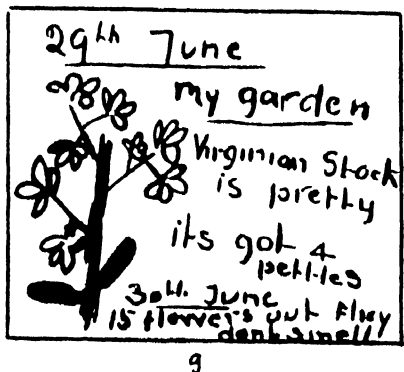 29th June
my garden
Virginian Stock
is pretty
its got 4
pettles
30th June
15 flowers out they
dont smell
9